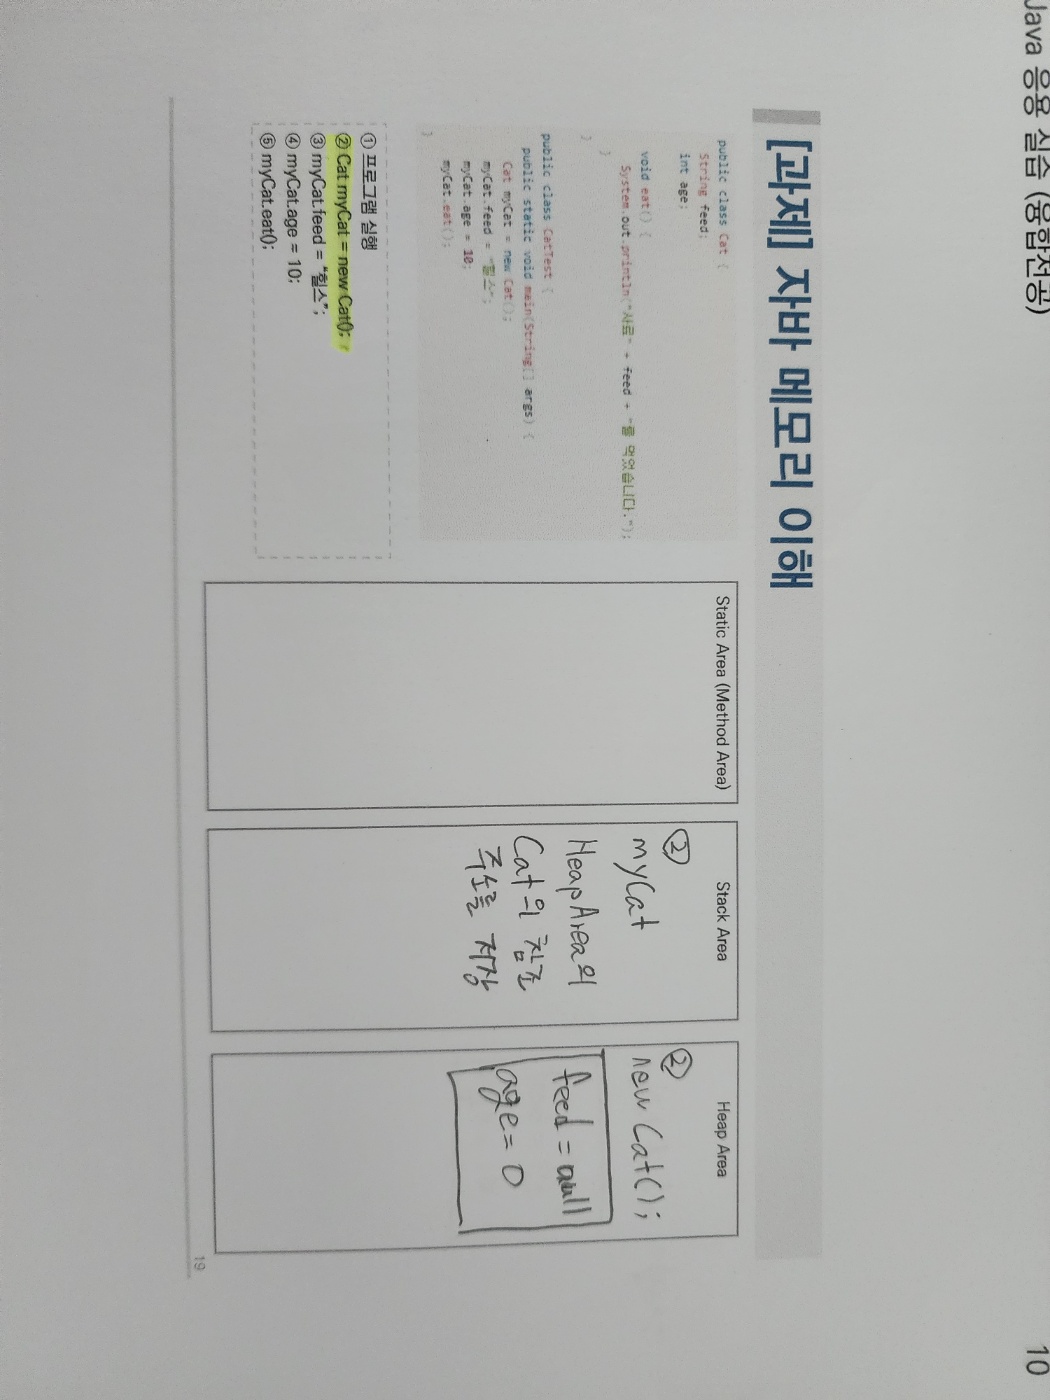 Java 응용 실습 (융합전공)
10
[과제] 자바 메모리 이해
public class Cat {
String feed;
int age;
void eat() {
System.out.println("사료" + feed + "를 먹었습니다.");
}
}
public class CatTest {
public static void main(String[] args) {
Cat myCat = new Cat();
myCat.feed = "힐스";
myCat.age = 10;
myCat.eat();
}
① 프로그램 실행
② Cat myCat = new Cat();
③ myCat.feed = "힐스";
④ myCat.age = 10;
⑤ myCat.eat();
Static Area (Method Area)
Stack Area
②
myCat
Heap Area의
Cat의 참조
주소를 저장
Heap Area
②
new Cat();
feed = null
age = 0
19